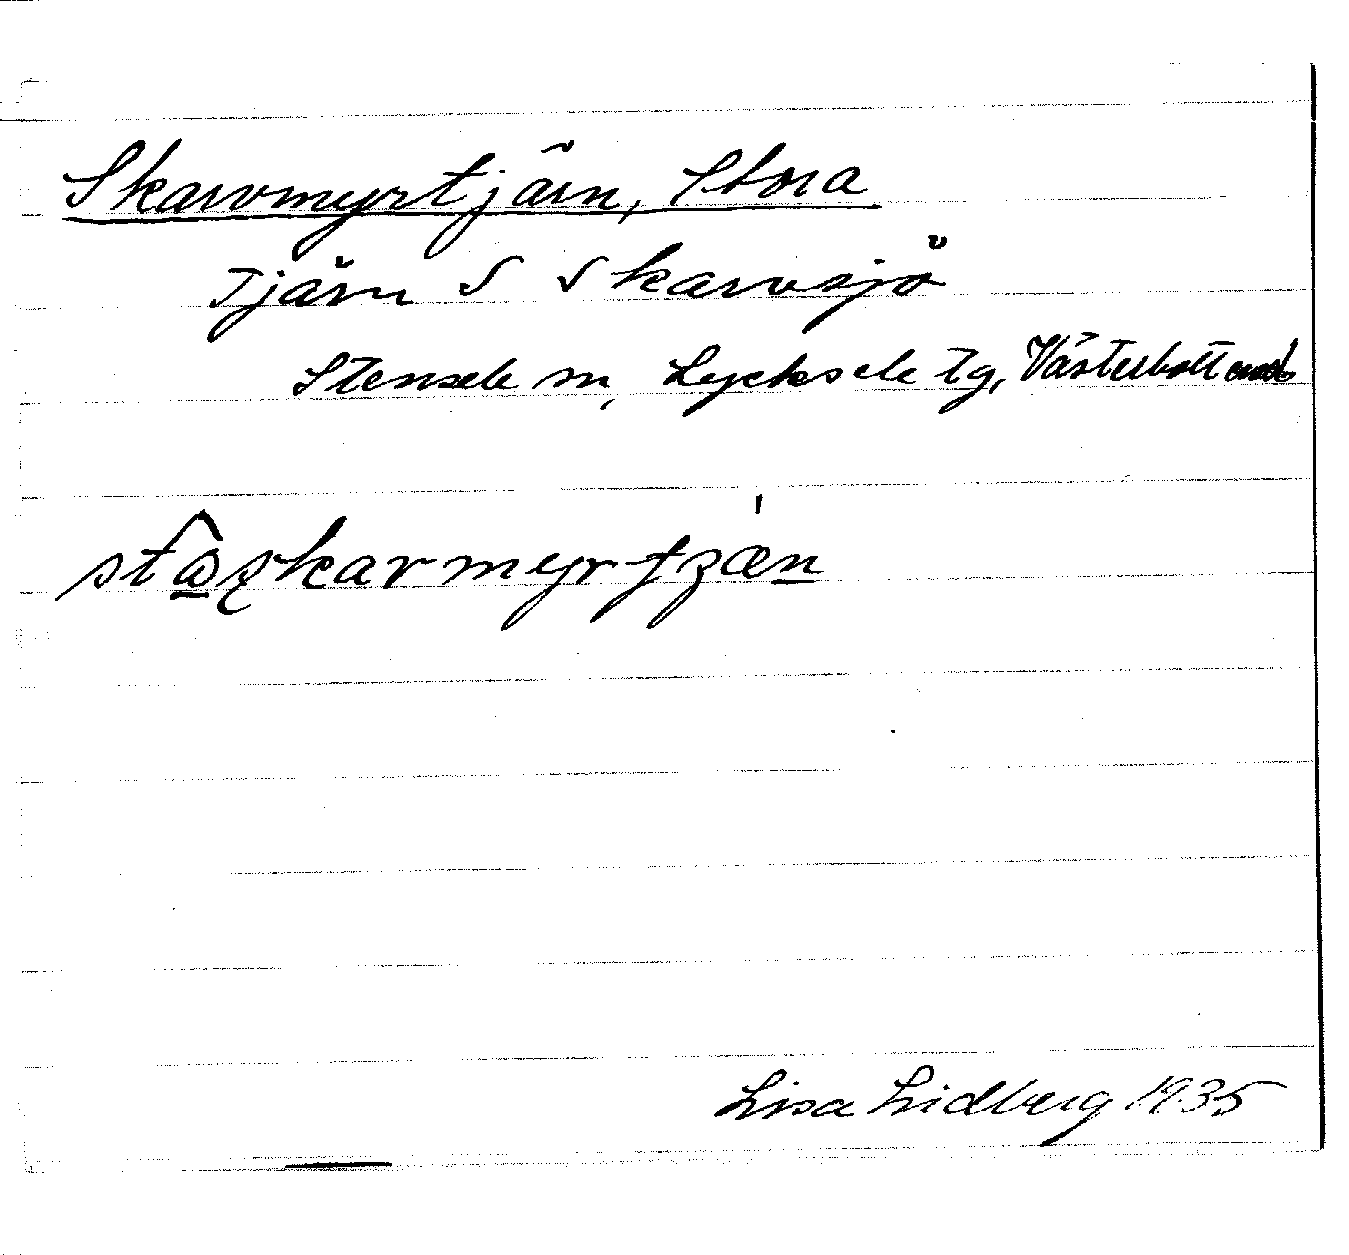 Skarvmyrtjärn, Stora
Tjärn S Skarvsjö
Stensele sn, Lycksele tg, Västerbotten
Lisa Lidberg 1935